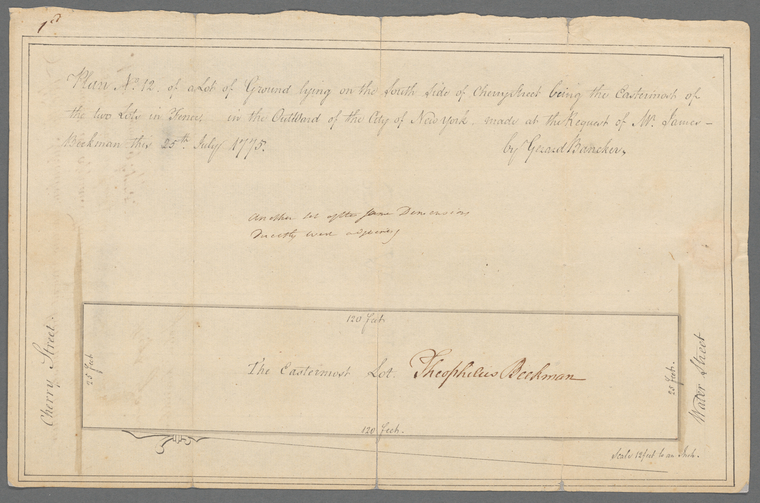 1st
Plan No 12. of a Lot of Ground lying on the South Side of Cherry Street being the Eastermost of
the two Lots in Fence, in the Outward of the City of New York. made at the Request of Mr. James -
Beekman this 25th July 1775.
by Gerard Bancker.
Another lot of the same Dimensions
Directly west adjoining
Cherry Street
25 feet
120 feet
The Eastermost Lot. Theophilus Beekman
120 feet.
25 feet.
Water Street
Scale 12 feet to an Inch.